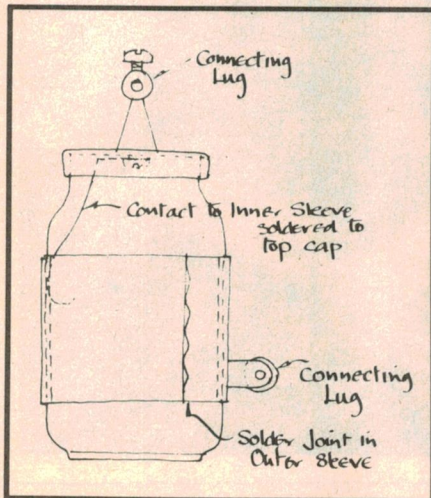 Connecting
Lug
Contact to Inner Sleeve
soldered to
top cap
Connecting
Lug
Solder Joint in
Outer Sleeve